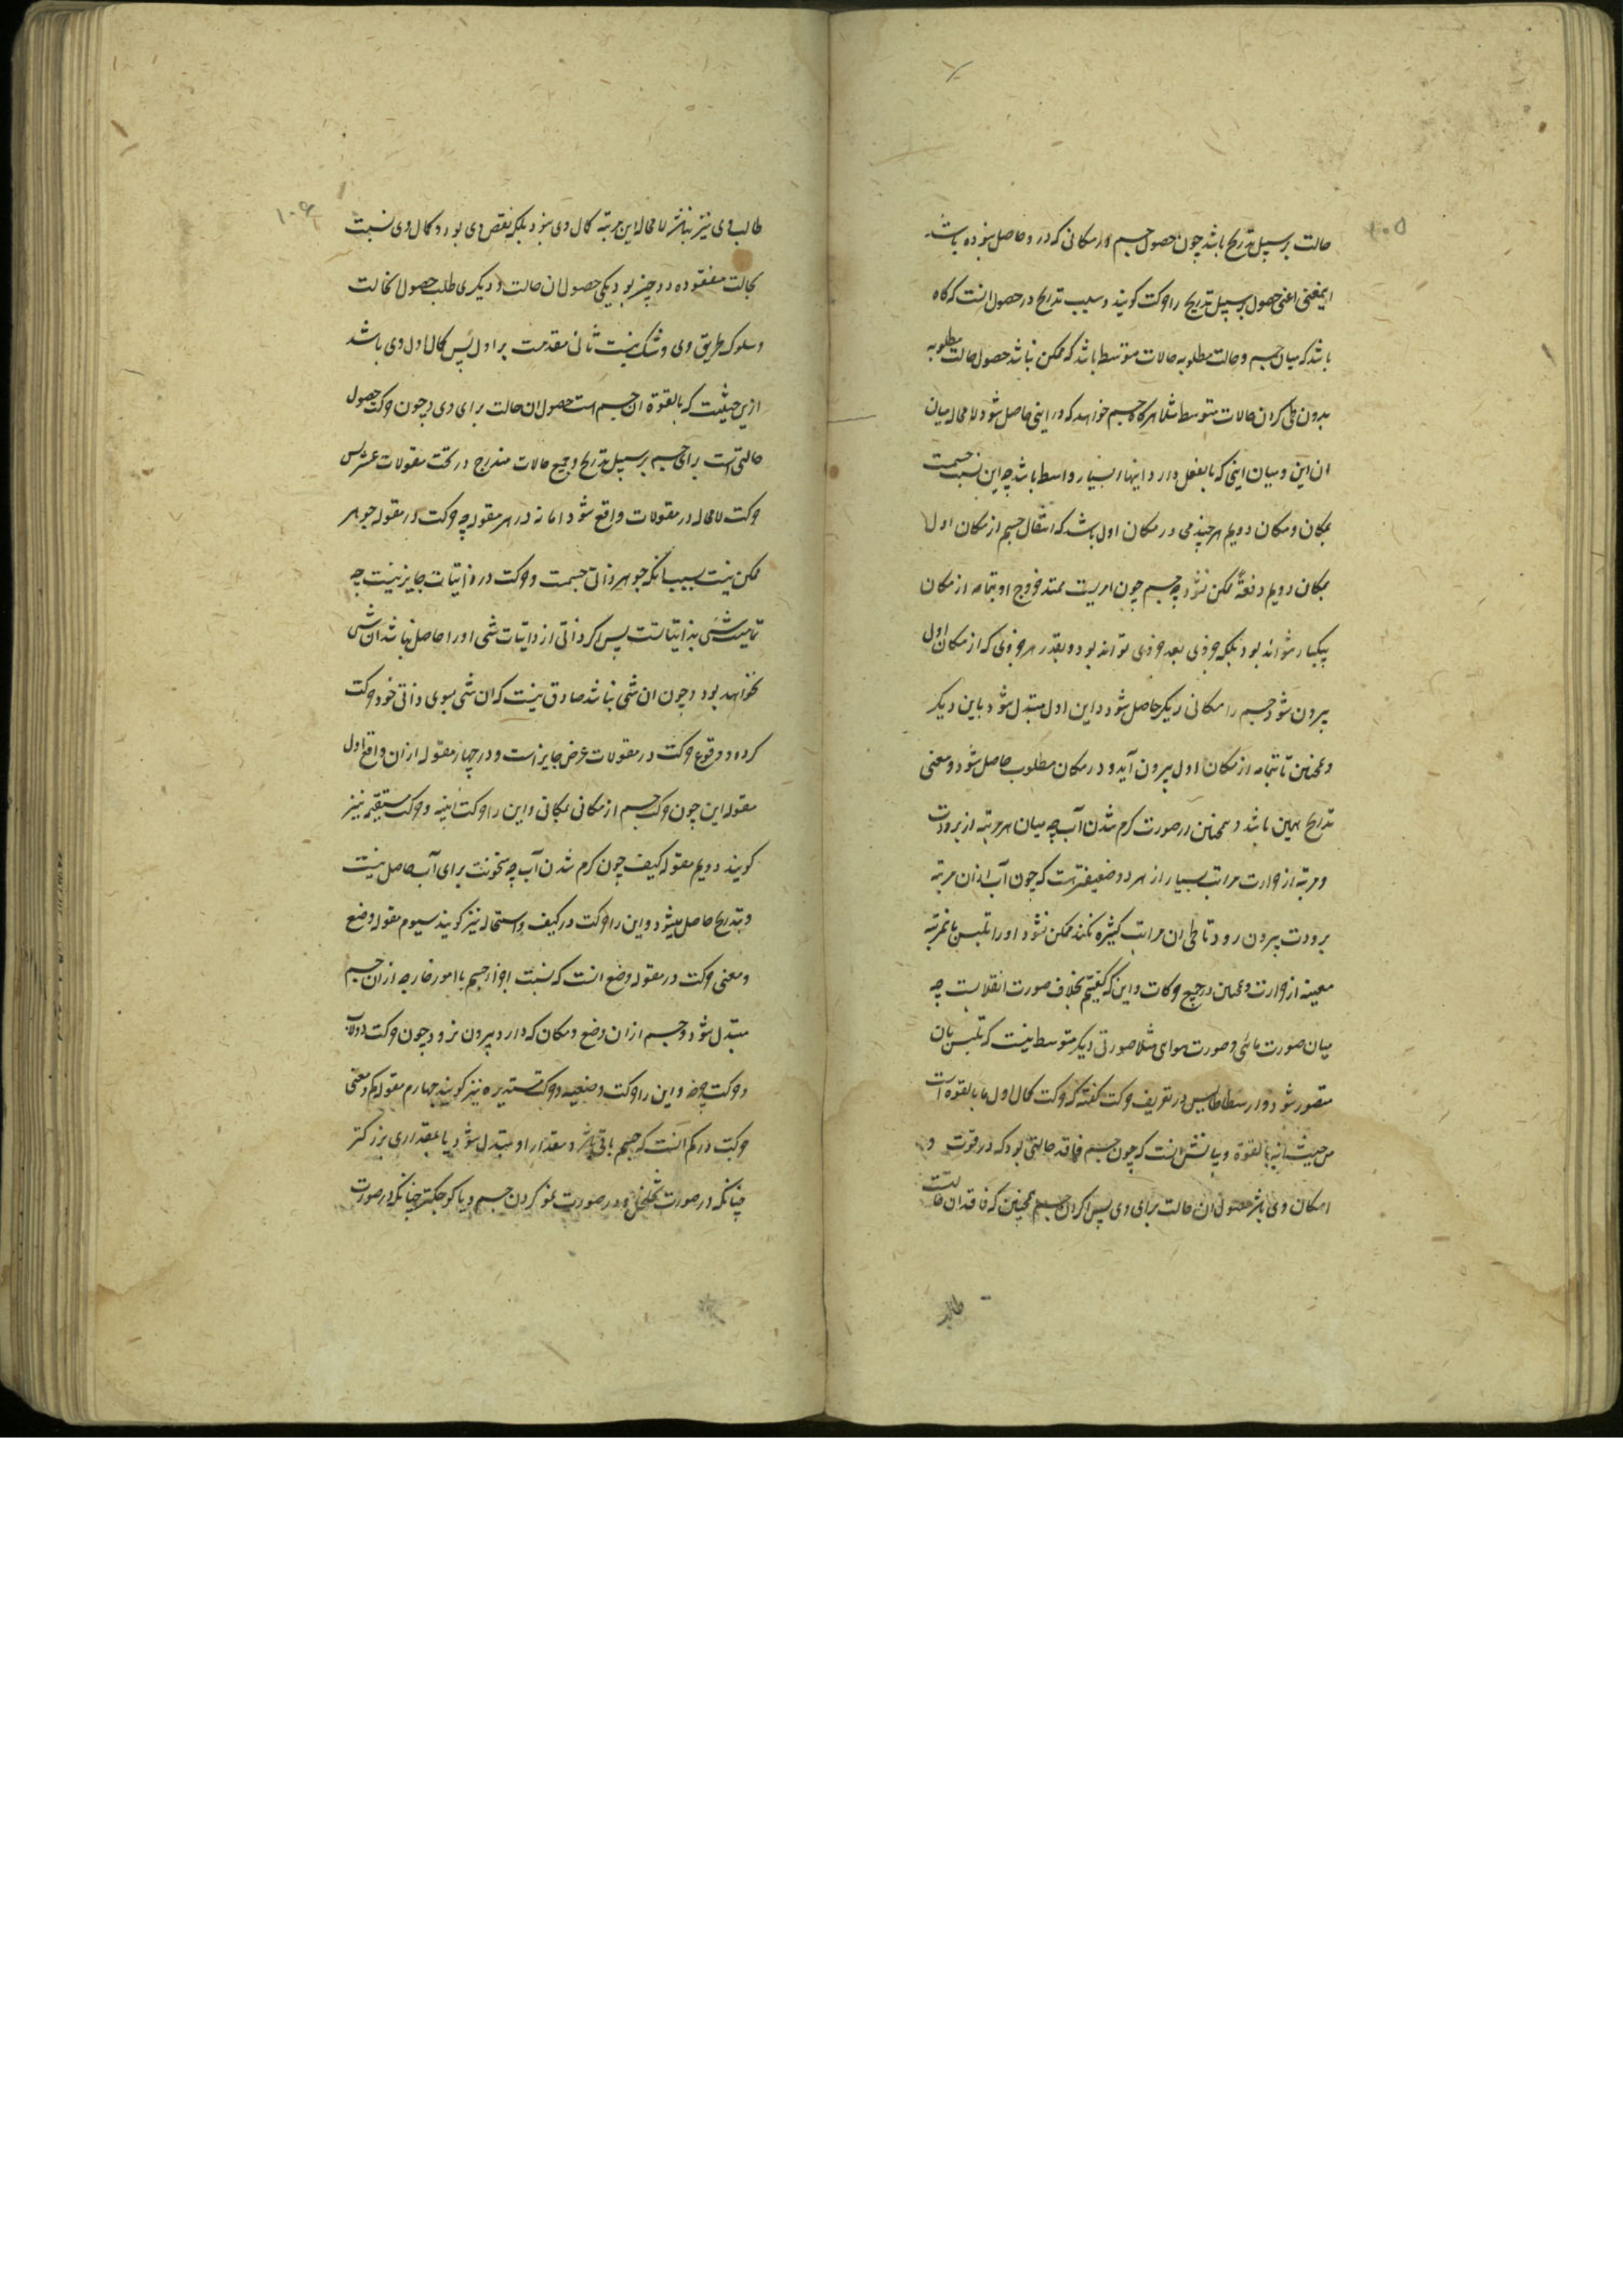 ۱۰۵
حالت بر سبیل تدریج باشد چون حصول جسم در مکانی که درو حاصل نبوده باشد
اینمعنی اعنی حصول بر سبیل تدریج را حرکت گویند و سبب تدریج در حصول انست که گاه
باشد که میان جسم و حالت مطلوبه حالات متوسط باشد که ممکن نباشد حصول حالت مطلوبه
بدون طی کردن حالات متوسط مثلا هرگاه جسم خواهد که در اینی حاصل شود لامحاله میان
ان این و میان اینی که بالفعل دارد اینها بسیار واسط باشد چه این نسبت جسمست
بمکان و مکان دویم هر چند می در مکان اول باشد که انتقال جسم از مکان اول
بمکان دویم دفعةً ممکن نشود چه جسم چون امریست ممتد خروج او بتمامه از مکان
بیکبار نتواند بود بلکه جزوی بعد جزوی تواند بود و بقدر هر جزوی که از مکان اول
بیرون شود جسم را مکانی دیگر حاصل شود و این اول مبتدل شود باین دیگر
و همچنین تا بتمامه از مکان اول بیرون آید و در مکان مطلوب حاصل شود و معنی
تدریج همین باشد و همچنین در صورت گرم شدن آب چه میان هر مرتبه از برودت
و مرتبه از حرارت مراتب بسیار از هر دو ضعیفتر هست که چون آب از ان مرتبه
برودت بیرون رود تا طی ان مراتب کثیره نکند ممکن نشود او را تلبس بانمرتبه
معینه از حرارت و همچنین در جمیع حرکات و این که گفتیم بخلاف صورت انقلابست چه
میان صورت مائی و صورت هوای مثلا صورتی دیگر متوسط نیست که تلبس بان
متصور شود و ارسطاطالیس در تعریف حرکت گفته که حرکت کمال اول ما بالقوه است
من حیث انه بالقوة و بیانش انست که چون جسم فاقد حالتی بود که در قوت و
امکان وی باشد حصول ان حالت برای وی پس اگر ان جسم همچنین که فاقد ان حالت
طالب
۱۰۶
طالب وی نیز نباشد لا محاله این مرتبه کمال وی نبود بلکه نقص وی بود و کمال وی نسبت
بحالت مفقوده دو چیز بود یکی حصول ان حالت و دیگری طلب حصول انحالت
و سلوک طریق وی و شک نیست ثانی مقدمست بر اول پس کمال اول وی باشد
ازین حیثیت که بالقوة ان جسم است حصول ان حالت برای وی و چون حرکت حصول
حالتی است برای جسم بر سبیل تدریج و جمیع حالات مندرج در تحت مقولات عشر پس
حرکت لامحاله در مقولات واقع شود اما نه در هر مقوله چه حرکت در مقوله جوهر
ممکن نیست بسبب انکه جوهر ذاتی جسمست و حرکت در ذاتیات جایز نیست چه
تمامیت شئ بذاتیاتست پس اگر ذاتی از ذاتیات شی او را حاصل نباشد ان شی
نخواهد بود و چون ان شی نباشد صادق نیست که ان شی بسوی ذاتی خود حرکت
کرده و وقوع حرکت در مقولات عرض جایز است و در چهار مقوله ازان واقع اول
مقوله این چون حرکت جسم از مکانی بمکانی و این را حرکت اینیه و حرکت مستقیمه نیز
گویند دویم مقوله کیف چون گرم شدن آب چه سخونت برای آب حاصل نیست
و بتدریج حاصل میشود و این را حرکت در کیف و استحاله نیز گویند سیوم مقوله وضع
و معنی حرکت در مقوله وضع انست که نسبت اجزا جسم با امور خارجه ازان جسم
مبتدل شود و جسم ازان وضع و مکان که دارد بیرون نرود چون حرکت دولاب
و حرکت چرخ و این را حرکت وضعیه و حرکت مستدیره نیز گویند چهارم مقوله کم و معنی
حرکت در کم آنست که جسم باقی باشد و مقدار او مبتدل شود یا بمقداری بزرگتر
چنانکه در صورت تخلخل و در صورت نمو کردن جسم و یا کوچکتر چنانکه در صورت